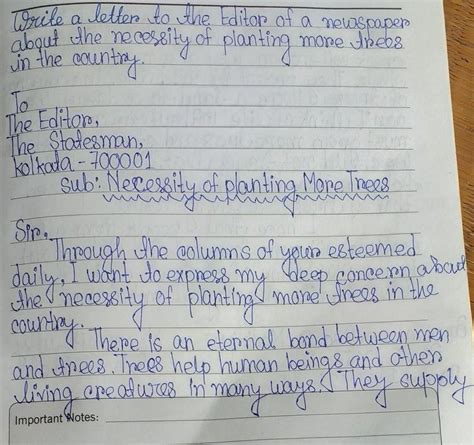 Write a letter to the Editor of a newspaper
about the necessity of planting more trees
in the country.
To
The Editor,
The Statesman,
Kolkata - 700001
Sub: Necessity of planting More Trees
Sir,
Through the columns of your esteemed
daily, I want to express my deep concern about
the necessity of planting more trees in the
country.
There is an eternal bond between men
and trees. Trees help human beings and other
living creatures in many ways. They supply
Important Notes: